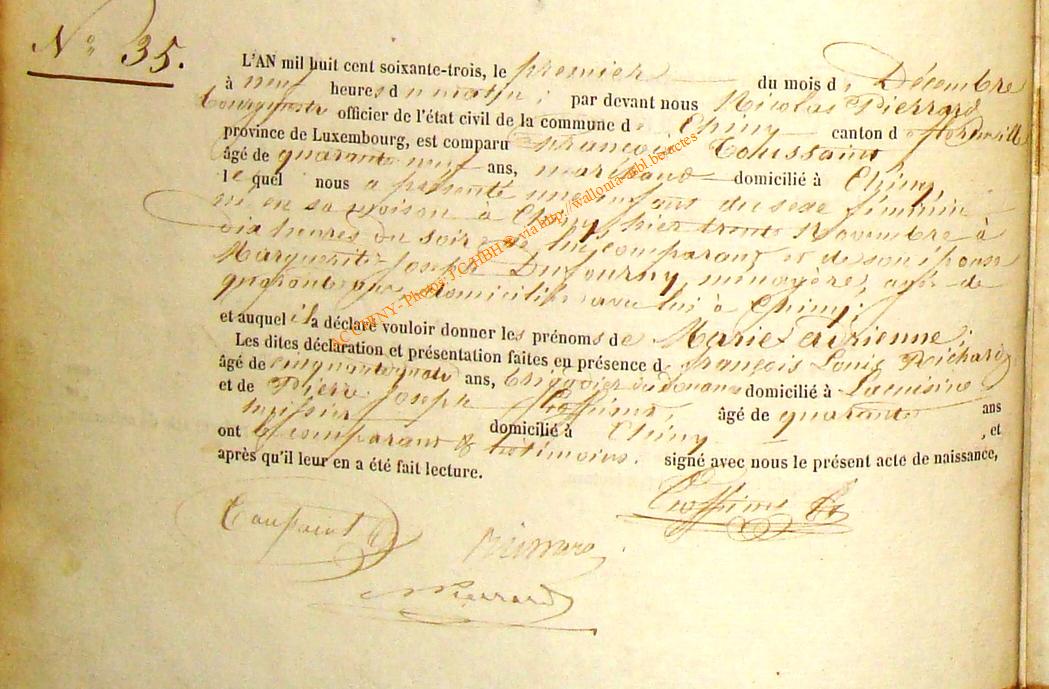 N° 35.
L'AN mil huit cent soixante-trois, le premier du mois de Décembre
à neuf heures du matin ; par devant nous Nicolas Pierrard
bourgmestre officier de l'état civil de la commune de Chiny canton de Florenville
province de Luxembourg, est comparu François Toussaint
âgé de quarante neuf ans, maréchal domicilié à Chiny,
lequel nous a présenté une enfant du sexe féminin
né en sa maison à Chiny, hier trente Novembre à
dix heures du soir de lui comparant et de son épouse
Marguerite Joseph Dufourny, ménagère, agée de
quarante ans domiciliée avec lui à Chiny ;
et auquel il a déclaré vouloir donner les prénoms de Marie Adrienne ;
Les dites déclaration et présentation faites en présence de François Louis Richard
âgé de cinquante ans, brigadier de Douane domicilié à Lacuisine
et de Pierre Joseph âgé de quarante ans
domicilié à Chiny , et
ont le comparant & les témoins. signé avec nous le présent acte de naissance,
après qu'il leur en a été fait lecture.
Toussaint
Pierrard
ACCHINY-Photos JC HBH © via http://wallonia-asbl.be/actes